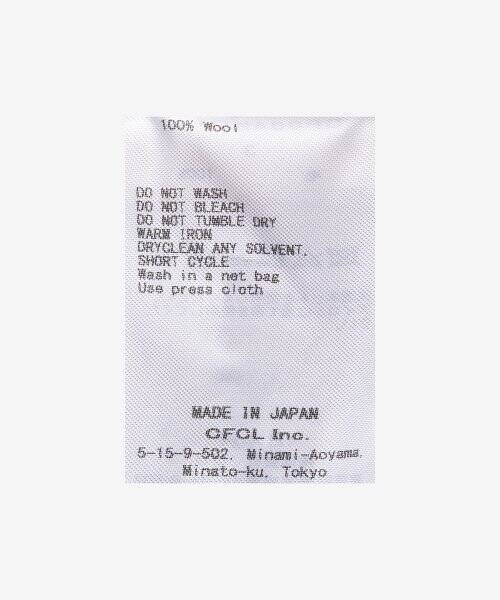 100% Wool
DO NOT WASH
DO NOT BLEACH
DO NOT TUMBLE DRY
WARM IRON
DRYCLEAN ANY SOLVENT.
SHORT CYCLE
Wash in a net bag
Use press cloth
MADE IN JAPAN
CFCL Inc.
5-15-9-502, Minami-Aoyama,
Minato-ku, Tokyo